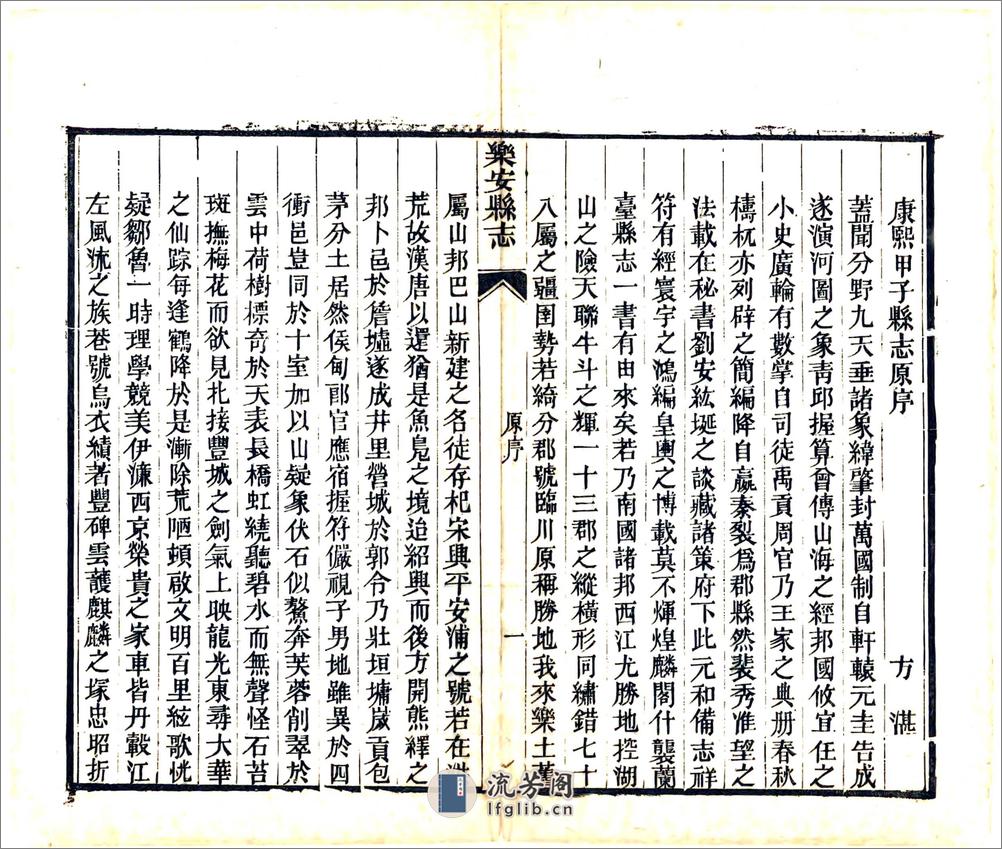 康熙甲子縣志原序 方湛
蓋聞分野九天垂諸象緯肇封萬國制自軒轅元圭告成
遂演河圖之象靑邱握算曾傳山海之經邦國攸宜任之
小史廣輪有數掌自司徒禹貢周官乃王家之典册春秋
檮杌亦列辟之簡編降自嬴秦裂爲郡縣然裴秀准望之
法載在秘書劉安紘埏之談藏諸策府下此元和備志祥
符有經寰宇之鴻編皇輿之博載莫不煇煌麟閣什襲蘭
臺縣志一書有由來矣若乃南國諸邦西江尤勝地控湖
山之險天聯牛斗之輝一十三郡之縱橫形同繡錯七十
八屬之疆圉勢若綺分郡號臨川原稱勝地我來樂土
樂安縣志
原序
一
屬山邦巴山新建之名徒存杞宋興平安浦之號若在
荒故漢唐以還猶是魚鳧之境迨紹興而後方開熊繹之
邦卜邑於詹墟遂成井里營城於郭令乃壯垣墉嵗貢包
茅分土居然侯甸郎官應宿握符儼視子男地雖異於四
衝邑豈同於十室加以山疑象伏石似鰲奔芙蓉削翠於
雲中荷樹標奇於天表長橋虹繞聽碧水而無聲怪石苔
斑撫梅花而欲見北接豐城之劍氣上映龍光東尋大華
之仙踪每逢鶴降於是漸除荒陋頓啟文明百里絃歌恍
疑鄒魯一時理學競美伊濂西京榮貴之家車皆丹轂江
左風流之族巷號烏衣績著豐碑雲護麒麟之塚忠昭折
流芳阁
lfglib.cn